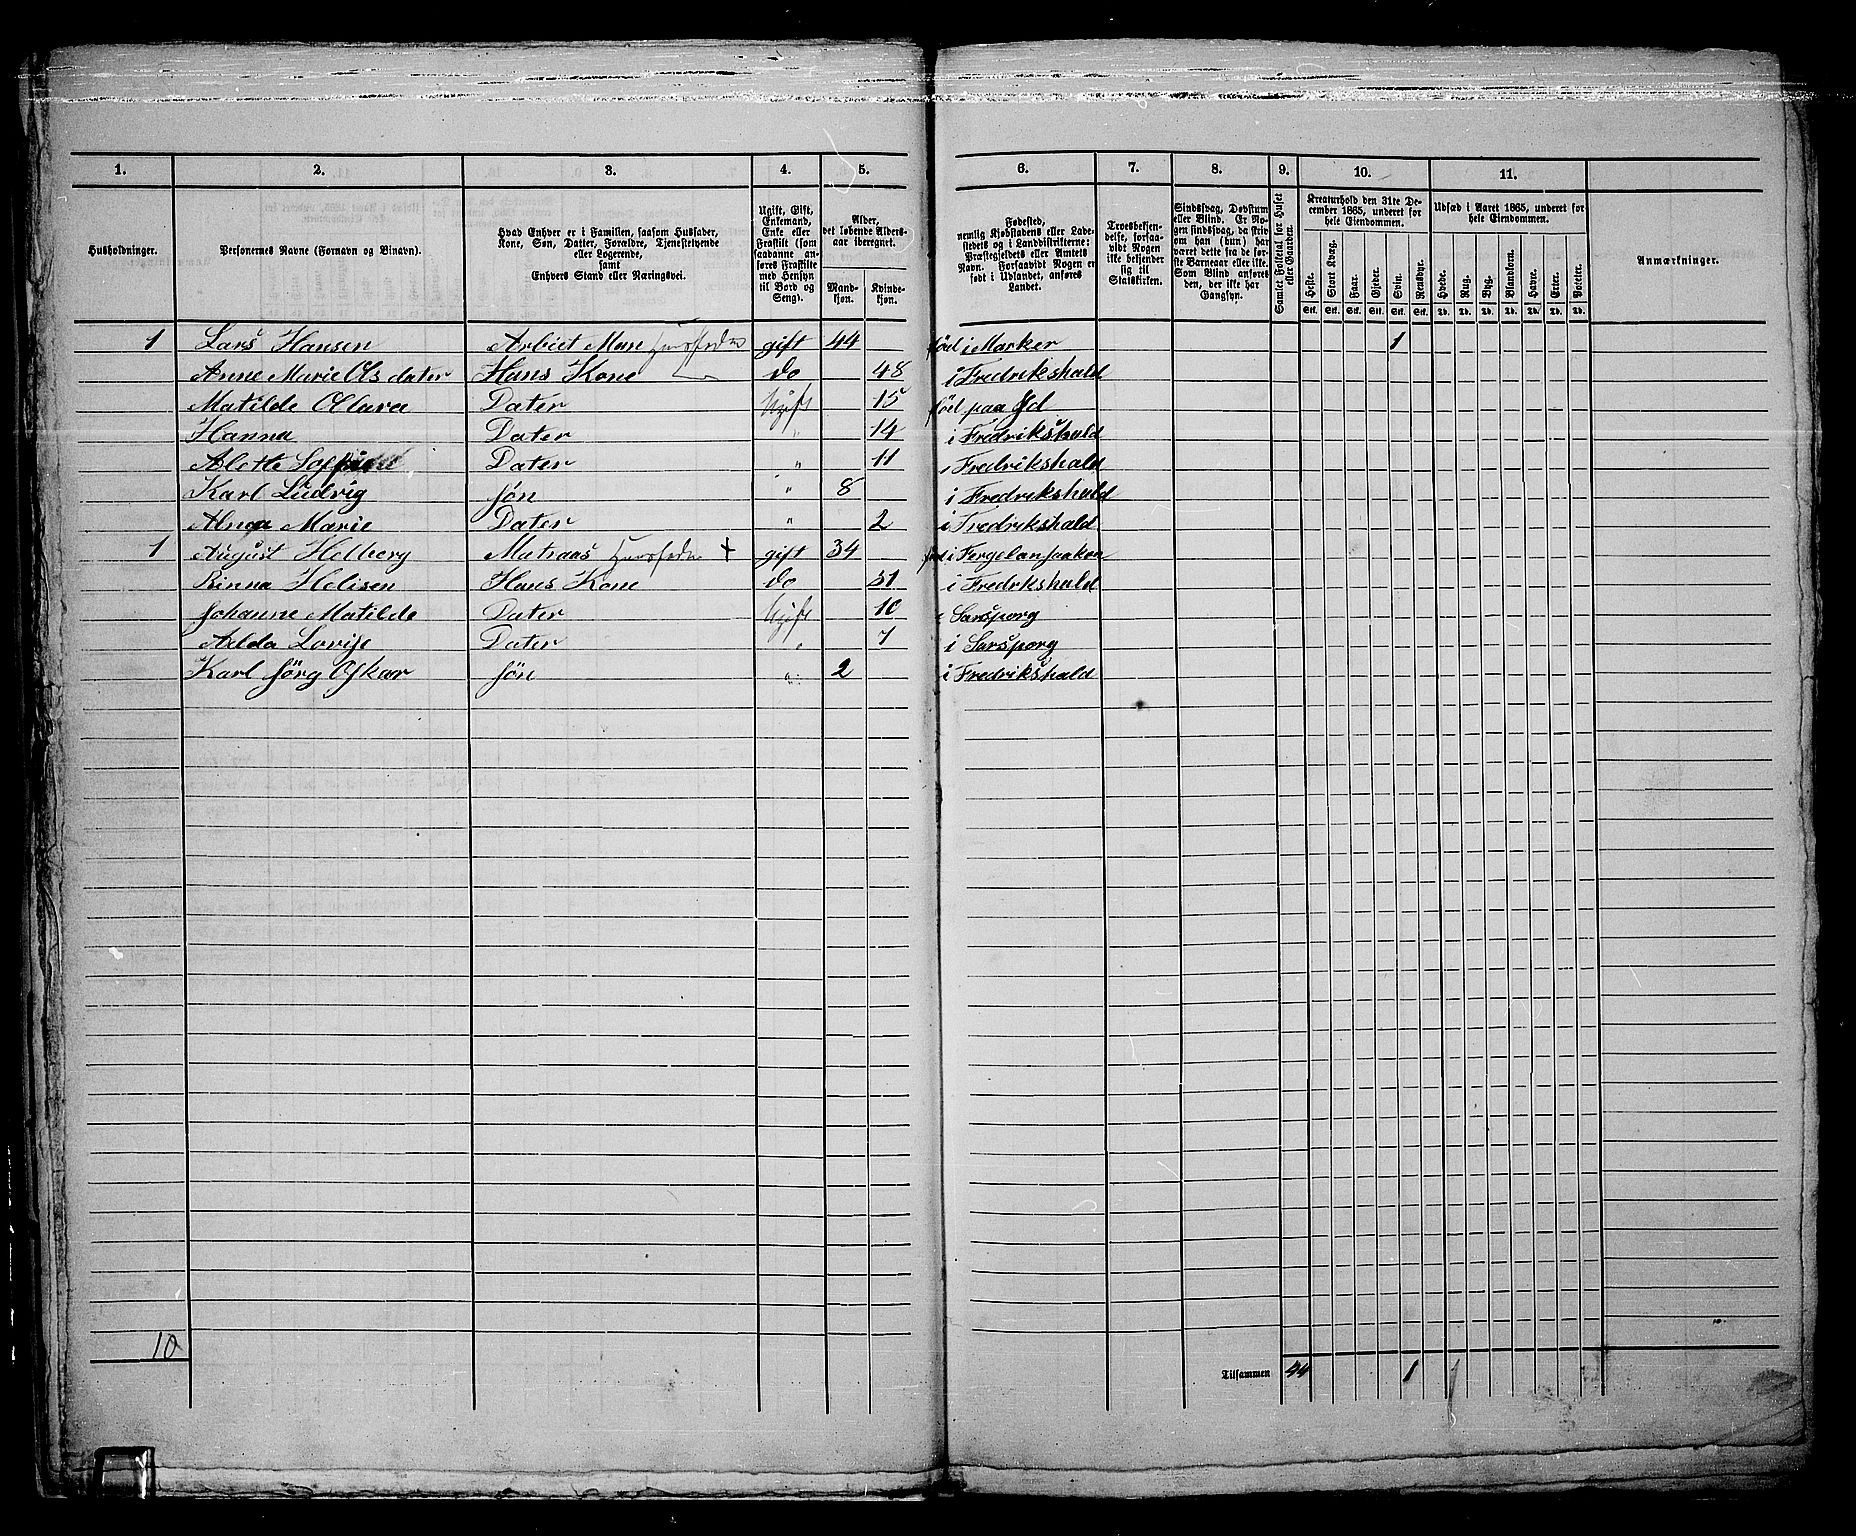 1. 2. 3. 4. 5. 6. 7. 8. 9. 10. 11.
Husholdninger.
Personernes Navne (Fornavn og Binavn).
Hvad Enhver er i Familien, saasom Husfader,
Kone, Søn, Datter, Forældre, Tjenestetyende
eller Logerende,
samt
Enhvers Stand eller Næringsvei.
Ugift, Gift,
Enkemand,
Enke eller
Fraskilt (som
saadanne an-
føres Fraskilte
med Hensyn
til Bord og
Seng).
Alder,
det løbende Alders-
aar iberegnet.
Mand-
kjøn.
Kvinde-
kjøn.
Fødested,
nemlig Kjøbstadens eller Lade-
stedets og i Landdistrikterne:
Præstegjeldets eller Amtets
Navn. Forsaavidt Nogen er
født i Udlandet, anføres
Landet.
Troesbekjen-
delse, forsaa-
vidt Nogen
ikke bekjender
sig til
Statskirken.
Sindssvag, Døvstum
eller Blind. Er No-
gen sindssvag, da skriv
om han (hun) har
været dette fra de før-
ste Barneaar eller ikke.
Som Blind anføres
den, der ikke har
Gangsyn.
Samlet Folketal for Huset
eller Gaarden.
Kreaturhold den 31te De-
cember 1865, underet for
hele Eiendommen.
Heste. Stort Kvæg. Faar. Gjeder. Svin. Rensdyr.
Stk. Stk. Stk. Stk. Stk. Stk.
Udsæd i Aaret 1865, underet for
hele Eiendommen.
Hvede. Rug. Byg. Blandkorn. Havre. Erter. Poteter.
Td. Td. Td. Td. Td. Td. Td.
Anmærkninger.
1 Lars Hansen Arbiet Man Huusfader gift 44 föd i Marker 1
Anne Marie Ols dater Hans Kone do 48 i Fredrikshald
Matilde Olava Dater Ugift 15 föd paa Id
Hanna Dater " 14 i Fredrikshald
Alette Dater " 11 i Fredrikshald
Karl Ludvig Sön " 8 i Fredrikshald
Marie Dater " 2 i Fredrikshald
1 August Holberg Matraas Huusfader + gift 34 i
Rinna Helisen Hans Kone do 31 i Fredrikshald
Johanne Matilde Dater Ugift 10 i Sarsporg
Adda Lovise Dater " 7 i Sarsporg
Karl Jörg Oskar Sön " 2 i Fredrikshald
10
Tilsammen 44 1